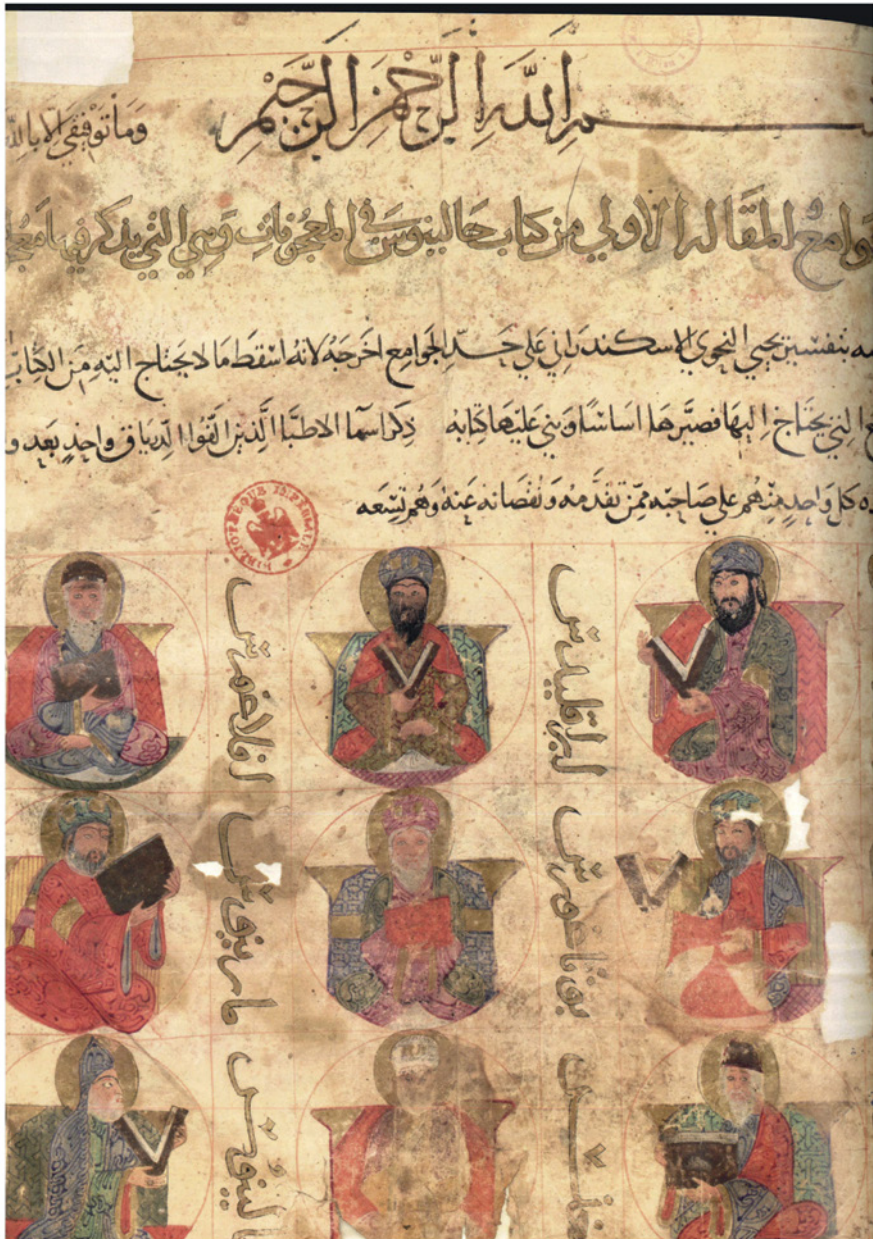 بسم الله الرحمن الرحيم
وما توفيقي الا بالله
جوامع المقاله الاولي من كتاب جالينوس في المعجونات وهي التي يذكر فيها
بتفسير يحيي النحوي الاسكندراني علي حد الجوامع اخرجه لانه اسقط ما لا يحتاج اليه من الكتاب
التي يحتاج اليها فصيرها اساسا وبني عليها كتابه ذكر اسما الاطبا الذين الفوا الدرياق واحد بعد
كل واحد منهم علي صاحبه ممن تقدمه ونقصانه عنه وهم تسعه
ابراقليدس
افلاغورس
مارينوس
جالينوس